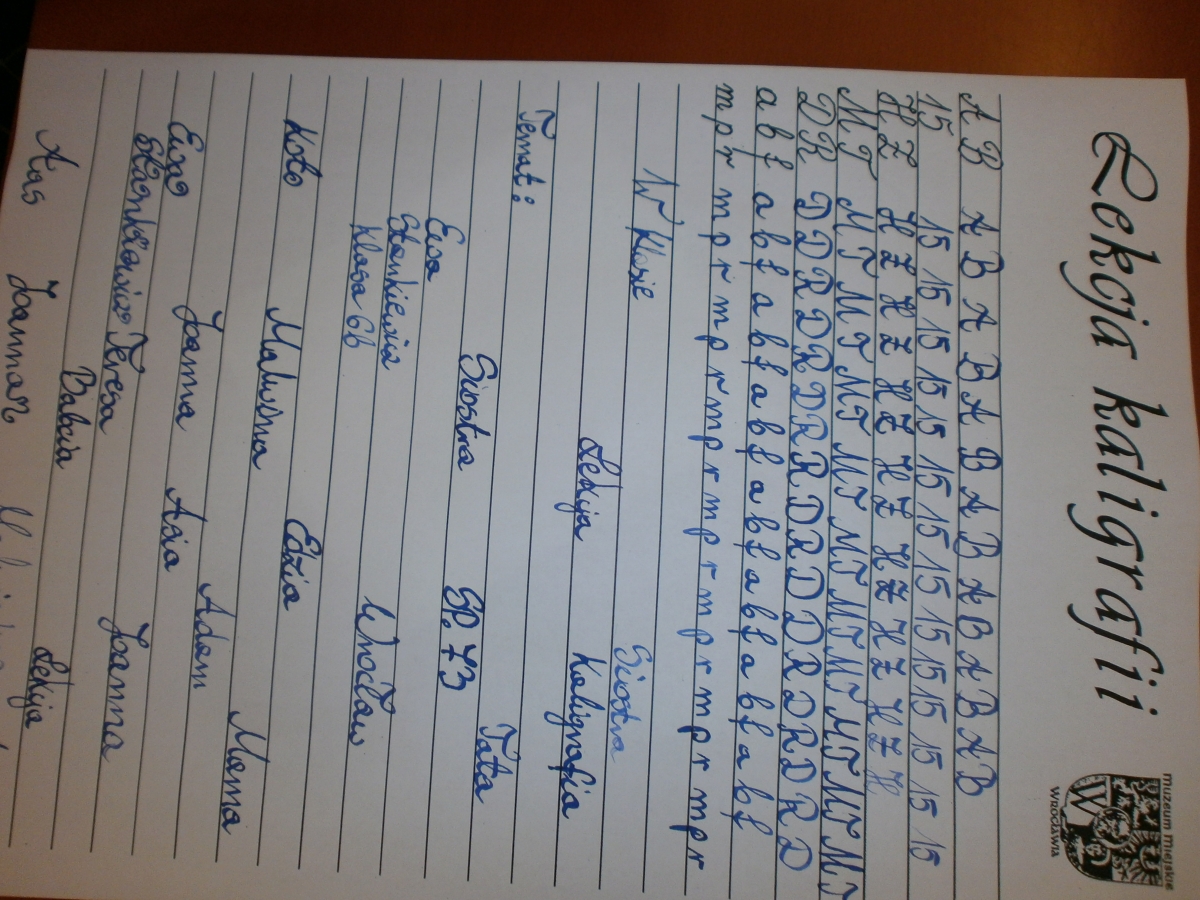 Lekcja kaligrafii
muzeum miejskie
WROCŁAWIA
A B A B A B A B A B A B A B A B A B
15 15 15 15 15 15 15 15 15 15 15 15 15 15
H Z H Z H Z H Z H Z H Z H Z H Z H
M T M T M T M T M T M T M T M T M T M T
D R D D R D D R D R R D R D D D R D D R D R D
a b f a b f a b f a b f a b f a b f a b f
m p r m p r m p r m p r m p r m p r m p r m p r
W klasie Siostra
Lekcja Kaligrafia
Temat:
Siostra Tata
Ewa SP. 73
Stankiewicz
klasa 6b Wrocław
Koto Malwina Edzia
Mama
Ewa Joanna Asia Adam
Stankiewicz Teresa Joanna
Babcia
Lekcja